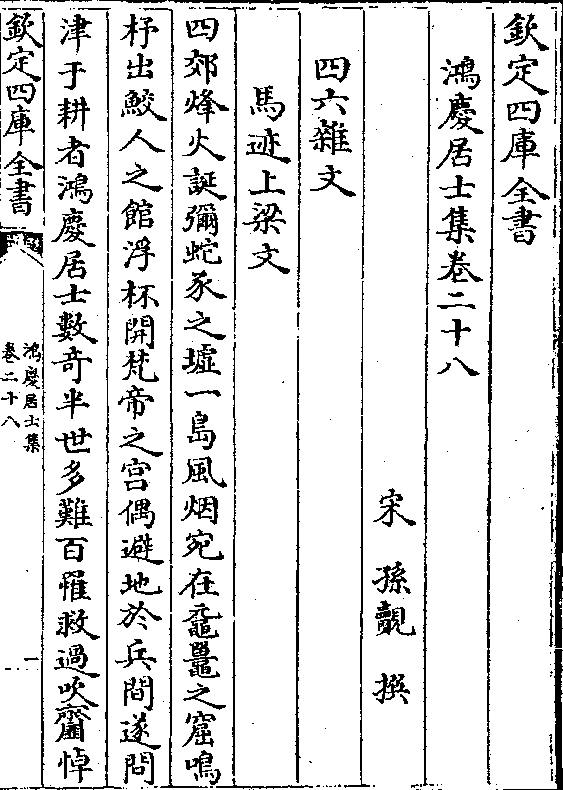 欽定四庫全書
鴻慶居士集卷二十八
宋 孫覿 撰
四六雜文
馬迹上梁文
四郊烽火誕彌蛇豕之墟一島風烟宛在黿鼉之窟鳴
杼出鮫人之館浮杯開梵帝之宫偶避地於兵間遂問
津于耕者鴻慶居士數奇半世多難百罹救過吹齏悼
欽定四庫全書
鴻慶居士集
卷二十八
一